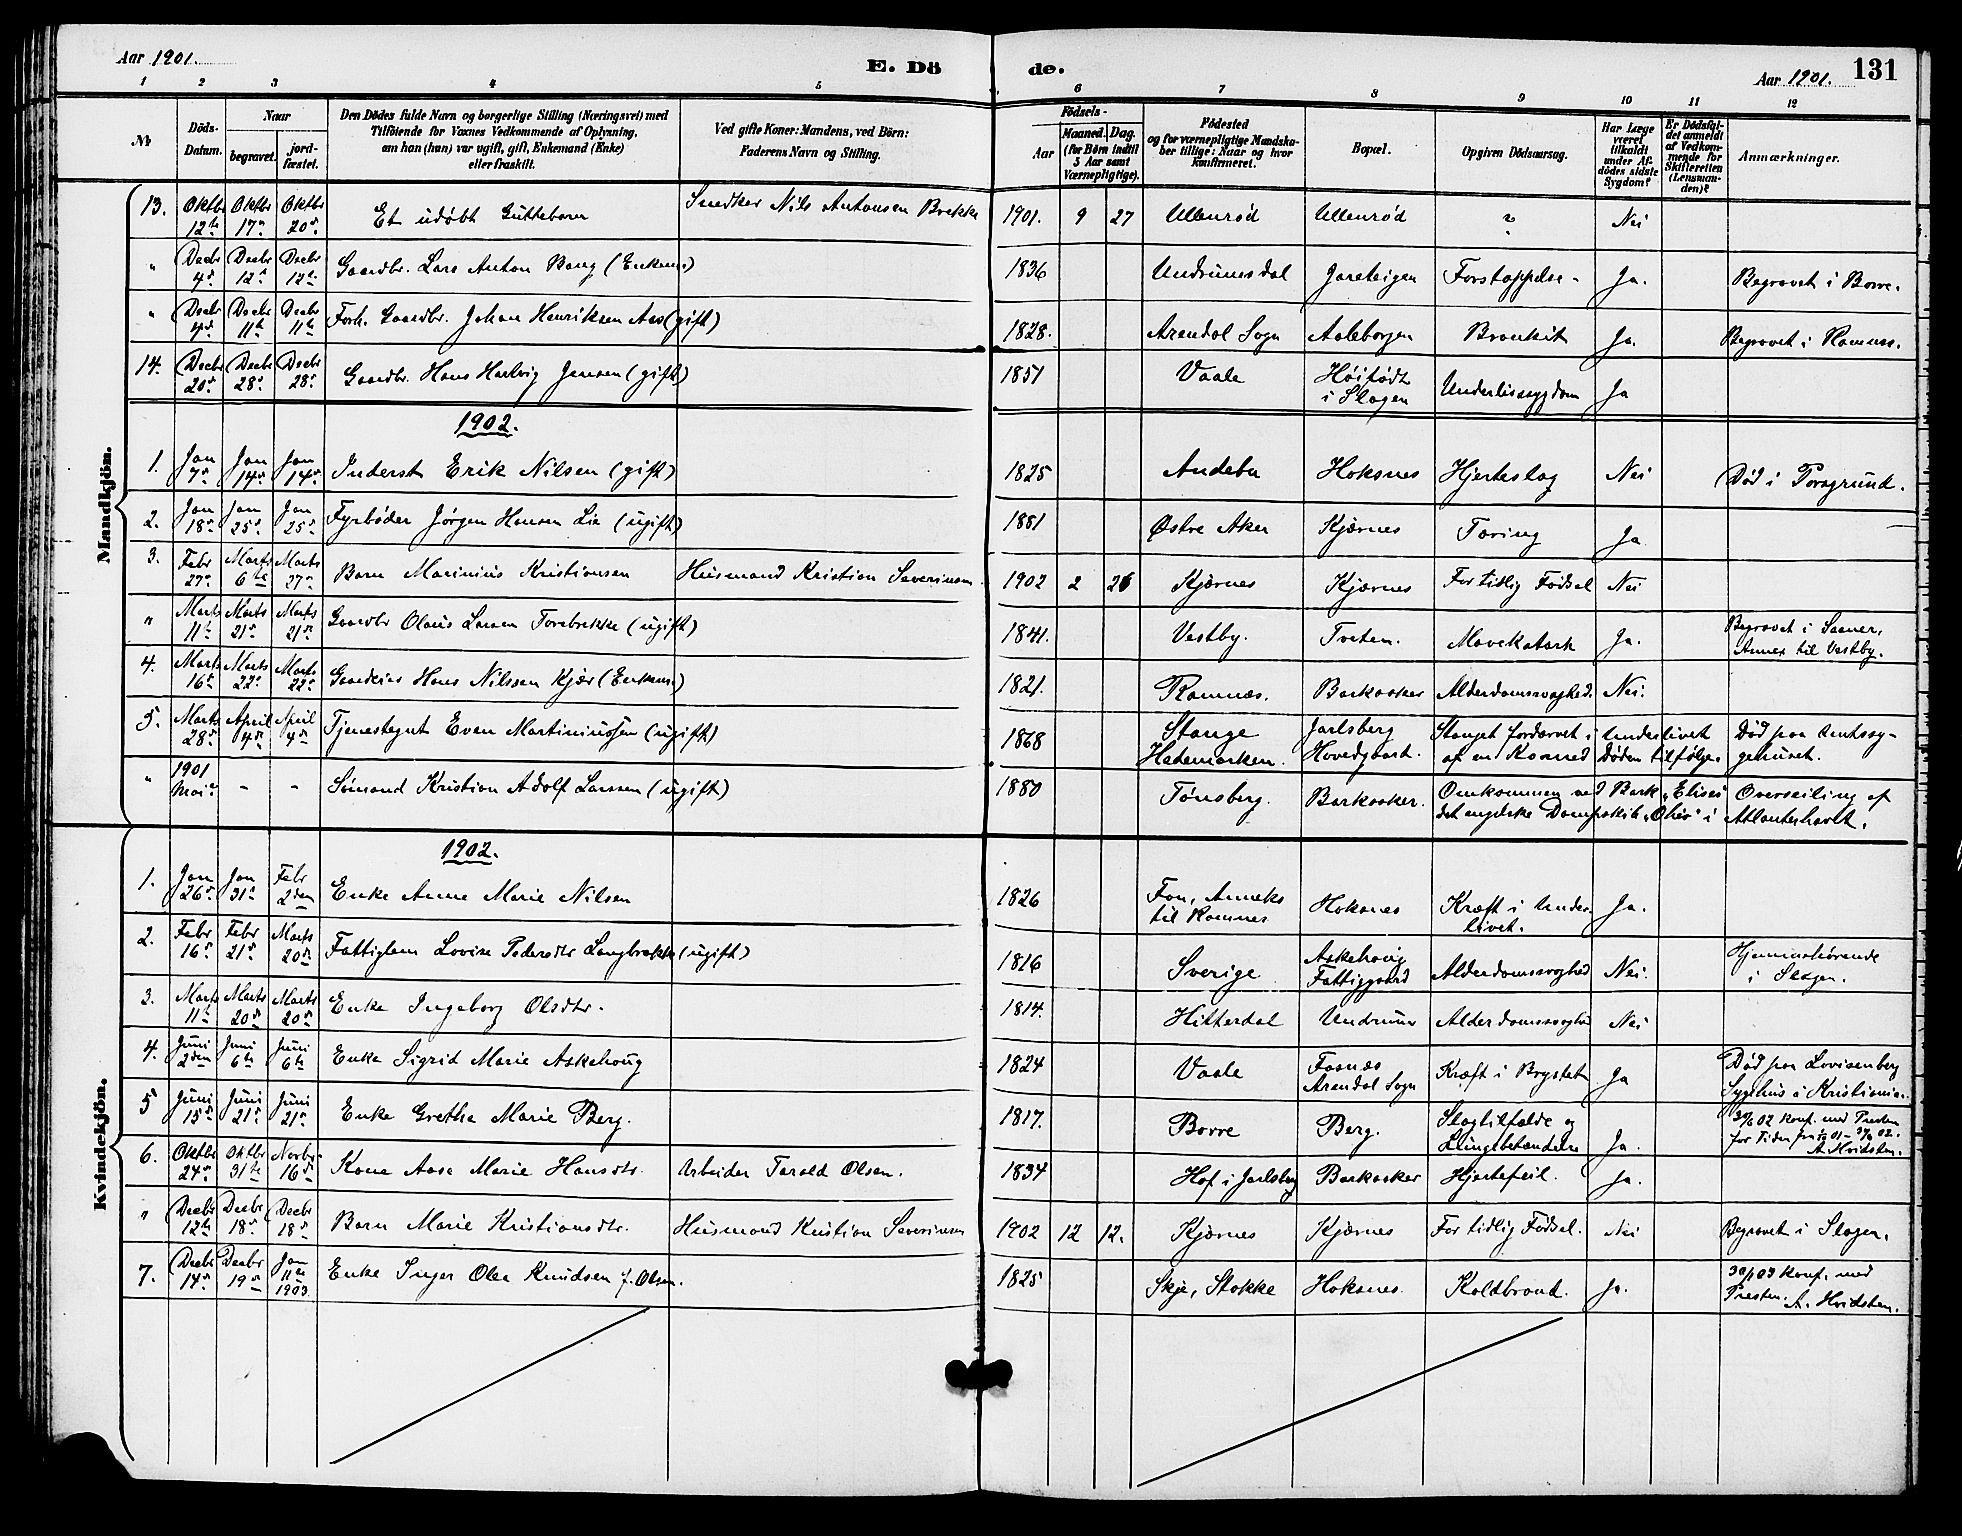 Aar 1901. E. Dö de. Aar 1901. 131
1 2 3 4 5 6 7 8 9 10 11 12
No.
Döds-
Datum.
Naar
begravet. jord-
fæstet.
Den Dödes fulde Navn og borgerlige Stilling (Næringsvei) med
Tilföiende for Voxnes Vedkommende af Oplysning,
om han (hun) var ugift, gift, Enkemand (Enke)
eller fraskilt.
Ved gifte Koner: Mandens, ved Börn:
Faderens Navn og Stilling.
Födsels-
Aar Maaned. Dag.
(for Börn indtil
5 Aar samt
Værnepligtige).
Födested
og for værnepligtige Mandska-
ber tillige: Naar og hvor
konfirmeret.
Bopæl.
Opgiven Dödsaarsag.
Har Læge
været
tilkaldt
under Af-
dödes sidste
Sygdom?
Er Dödsfal-
det anmeldt
af Vedkom-
mende for
Skifteretten
(Lensman-
den)?
Anmærkninger.
Mandkjön.
13. Oktbr 12te Oktbr 17de Oktbr 20de Et udøbt Guttebarn Snedker Nils Antonsen Brekke 1901. 9 27 Ullenrød Ullenrød ? Nei
" Decbr 4de Decbr 12te Decbr 12te Gaardbr. Lars Anton Bang (Enkem.) 1836 Undrumsdal Jareteigen Forstoppelse - Ja. Begravet i Borre.
" Decbr 4de Decbr 11te Decbr 11te Forh. Gaardbr. Johan Henriksen Aas (gift) 1828. Arendal Sogn Aaleborgen Bronkit Ja. Begravet i Ramnes.
14. Decbr 20de Decbr 28de Decbr 28de Gaardbr. Hans Hartvig Jensen (gift) 1851 Vaale Høitødt i Slagen Underlivssygdom Ja
1902.
1. Jan 7de Jan 14de Jan 14de Inderst Erik Nilsen (gift) 1825 Andebu Hoksnes Hjerteslag Nei Død i Porsgrund.
2. Jan 18de Jan 25de Jan 25de Fyrbøder Jørgen Hansen Lie (ugift) 1881 Østre Aker Kjærnes Tæring Ja
3. Febr 27de Marts 6te Marts 27de Barn Marinius Kristiansen Husmand Kristian Severinsen. 1902 2 26 Kjærnes Kjærnes For tidlig Fødsel Nei
" Marts 11te Marts 21de Marts 21de Gaardbr Olaus Larsen Torebrekke (ugift) 1841. Vestby. Treten. Mavekatarh Ja. Begravet i Saaner, Annex til Vestby.
4. Marts 16de Marts 22de Marts 22de Gaardeier Hans Nilssen Kjær (Enkem.) 1821. Ramnæs. Barkaaker Alderdomssvaghed. Nei.
5. Marts 28de April 4de April 4de Tjenestegut Even Martiniussen (ugift) 1868 Stange Hedemarken. Jarlsberg Hovedgaard. Stanget fordærvet i Underlivet af en Ko med Døden tilfølge. Død paa Amtssygehuset.
" 1901 Mai - - Sømand Kristian Adolf Larssen (ugift) 1880 Tønsberg. Barkaaker. Omkommen ved Bark "Elises" Overseiling af det engelske Dampskib "Ohio" i Atlanterhavet.
Kvindekjön.
1902.
1. Jan 26de Jan 31te Febr 2den Enke Anne Marie Nilsen 1826 Fon, Anneks til Ramnes Hoksnes Kræft i Underlivet. Ja.
2. Febr 16de Febr 21de Marts 20de Fattiglem Lovise Pedersdtr Langbrekke (ugift) 1816 Sverige Askehoug Fattiggaard Alderdomssvaghed Nei. Hjemmehørende i Slagen.
3. Marts 11te Marts 20de Marts 20de Enke Ingeborg Olsdtr. 1814. Hitterdal Undrum Alderdomssvaghed Nei
4. Juni 2den Juni 6te Juni 6te Enke Sigrid Marie Askehoug 1824 Vaale Fosnæs Arendal Sogn Kræft i Brystet Ja Død paa Lovisenberg Sygehus i Kristiania.
5 Juni 15de Juni 21de Juni 21de Enke Grethe Marie Berg. 1817. Borre Berg. Slagtilfælde og Lungebetændelse Ja. 30/6 02 konf. med Presten for Tiden A. Hvidsten.
6. Oktbr 24de Oktbr 31te Novbr 16de Kone Aase Marie Hansdtr. Arbeider Torald Olsen. 1834 Hof i Jarlsberg Barkaaker Hjertefeil. Ja.
" Decbr 12te Decbr 18de Decbr 18de Barn Marie Kristiansdtr. Husmand Kristian Severinsen 1902 12 12. Kjærnes Kjærnes For tidlig Fødsel. Nei Begravet i Slagen.
7. Decbr 14de Decbr 19de Jan 11te 1903. Enke Inger Olea Knudsen f. Olsen. 1825 Skje, Stokke Hoksnes. Koldbrand. Ja. konf. med Presten. A. Hvidsten.